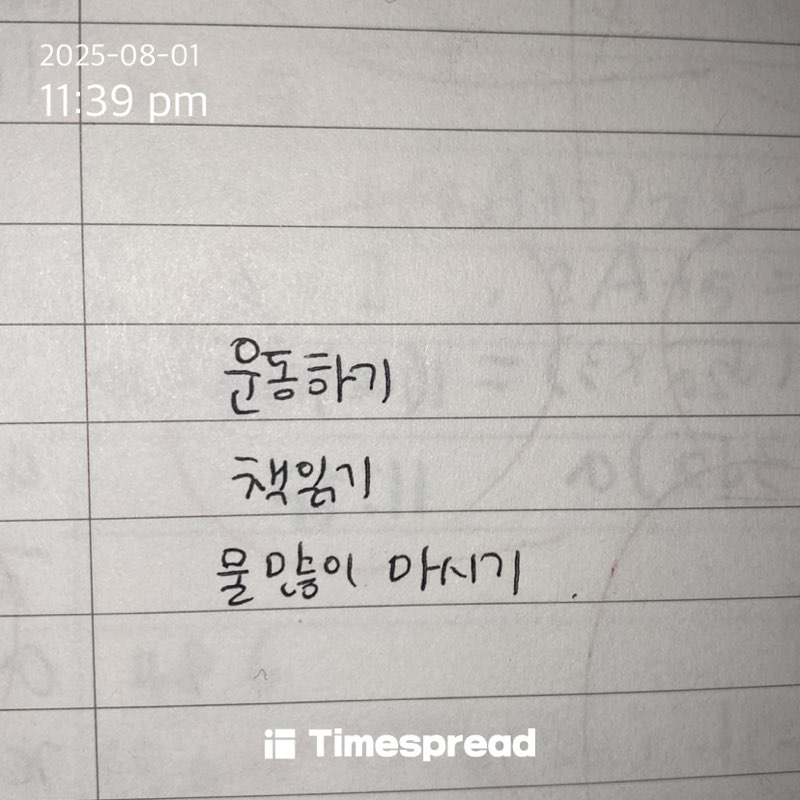 2025-08-01
11:39 pm
운동하기
책읽기
물 많이 마시기
Timespread